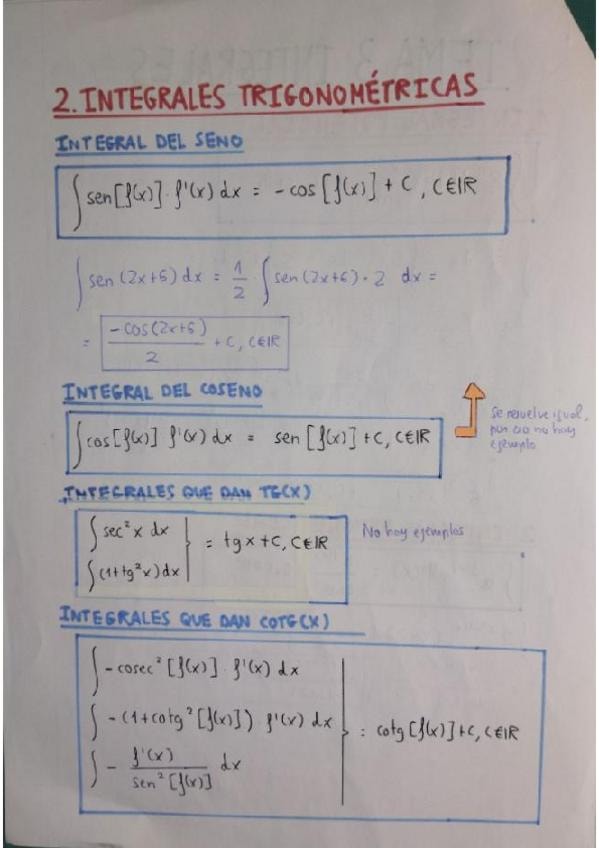 2. INTEGRALES TRIGONOMÉTRICAS
INTEGRAL DEL SENO
∫ sen[f(x)] · f'(x) dx = - cos [f(x)] + C, C∈IR
∫ sen (2x+6) dx = 1/2 · ∫ sen (2x+6) · 2 dx =
= -cos(2x+6)/2 + C, C∈IR
INTEGRAL DEL COSENO
∫ cos[f(x)] f'(x) dx = sen [f(x)] + C, C∈IR
Se resuelve igual,
por eso no hay
ejemplo
INTEGRALES QUE DAN TG(X)
∫ sec² x dx
∫ (1+tg² x) dx
= tg x + C, C∈IR
No hay ejemplos
INTEGRALES QUE DAN COTG(X)
∫ - cosec² [f(x)] · f'(x) dx
∫ - (1+cotg² [f(x)]) · f'(x) dx
∫ - f'(x)/sen² [f(x)] dx
= cotg [f(x)] + C, C∈IR